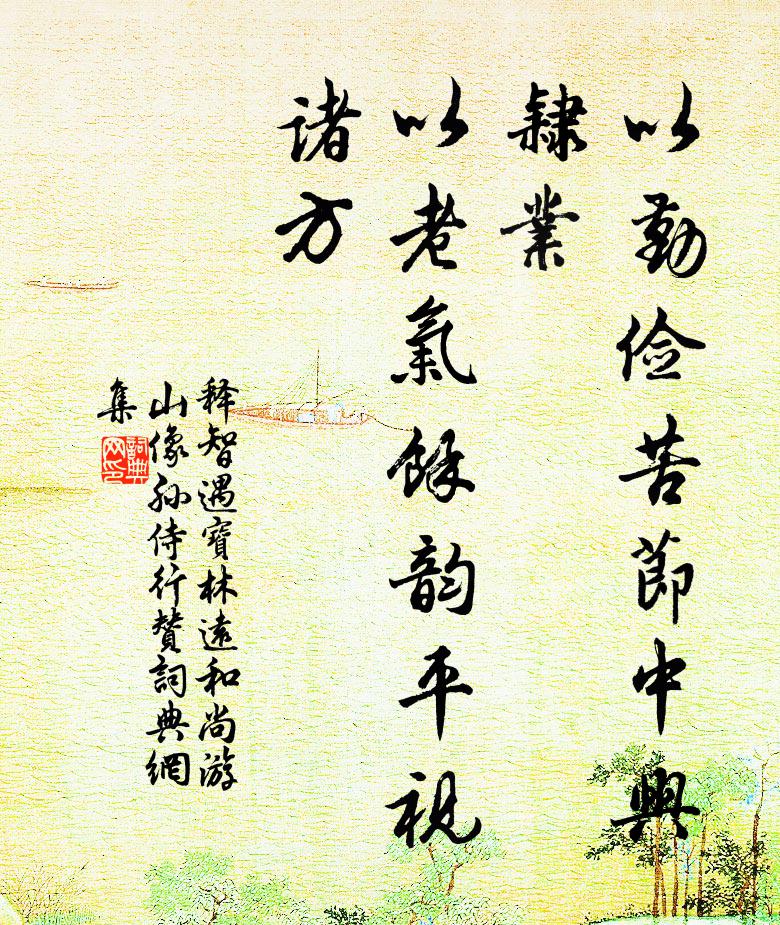 以勤俭苦節中興
隸業
以老氣餘韵平視
诸方
释智遇寶林遠和尚游
山像孙侍行贊詞典網
集
詞典
网印